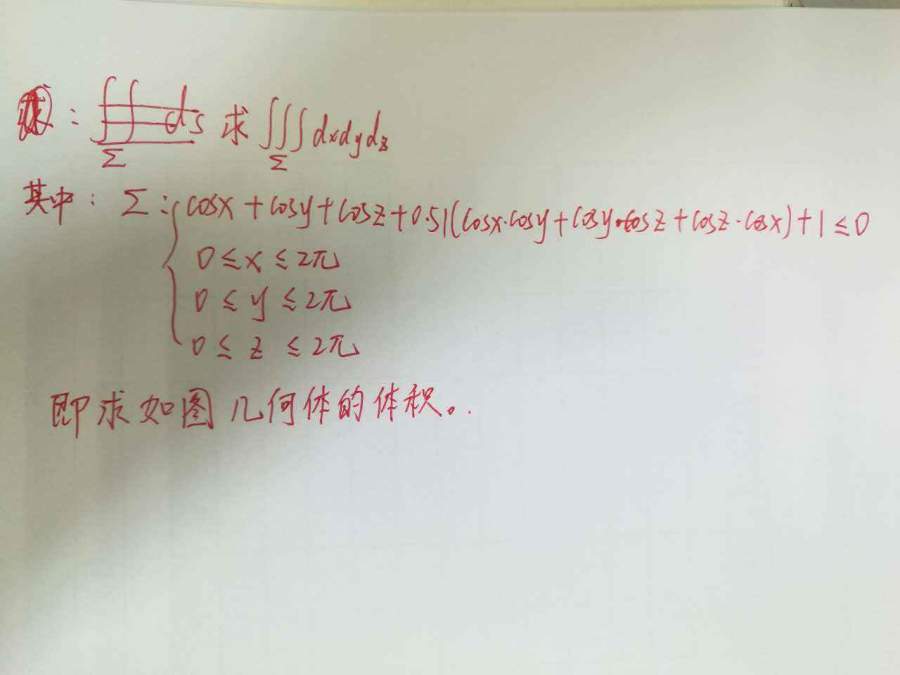 : ∬ ds 求 ∭ dxdydz
Σ Σ
其中: Σ: cosx + cosy + cosz + 0.51(cosx·cosy + cosy·cosz + cosz·cosx) + 1 ≤ 0
0 ≤ x ≤ 2π
0 ≤ y ≤ 2π
0 ≤ z ≤ 2π
即求如图几何体的体积。